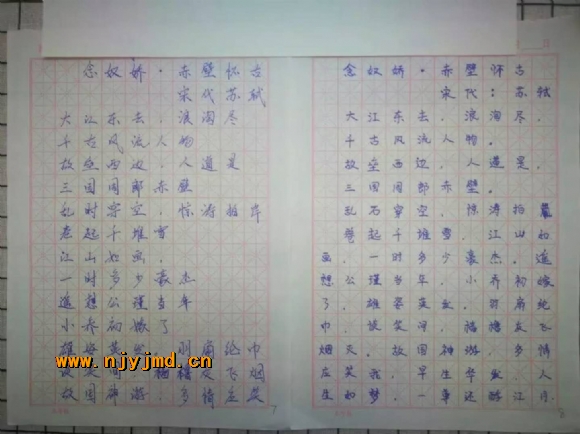 念奴娇·赤壁怀古
宋代苏轼
大江东去,浪淘尽
千古风流人物
故垒西边,人道是
三国周郎赤壁
乱时穿空,惊涛拍岸
卷起千堆雪
江山如画,
一时多少豪杰
遥想公瑾当年
小乔初嫁了
雄姿英发,羽扇纶巾
飞烟
故国神游,多情应笑
7
念奴娇·赤壁怀古
宋代:苏轼
大江东去,浪淘尽,
千古风流人物。
故垒西边,人道是,
三国周郎赤壁。
乱石穿空,惊涛拍
卷起千堆雪,江山如
画,一时多少豪杰。遥
想公瑾当年,小乔初嫁
了,雄姿英发,羽扇纶
巾,谈笑间,樯橹灰飞
烟灭。故国神游,多情
应笑我,早生华发,人
生如梦,一尊还酹江月。
8
www.njyjmd.cn